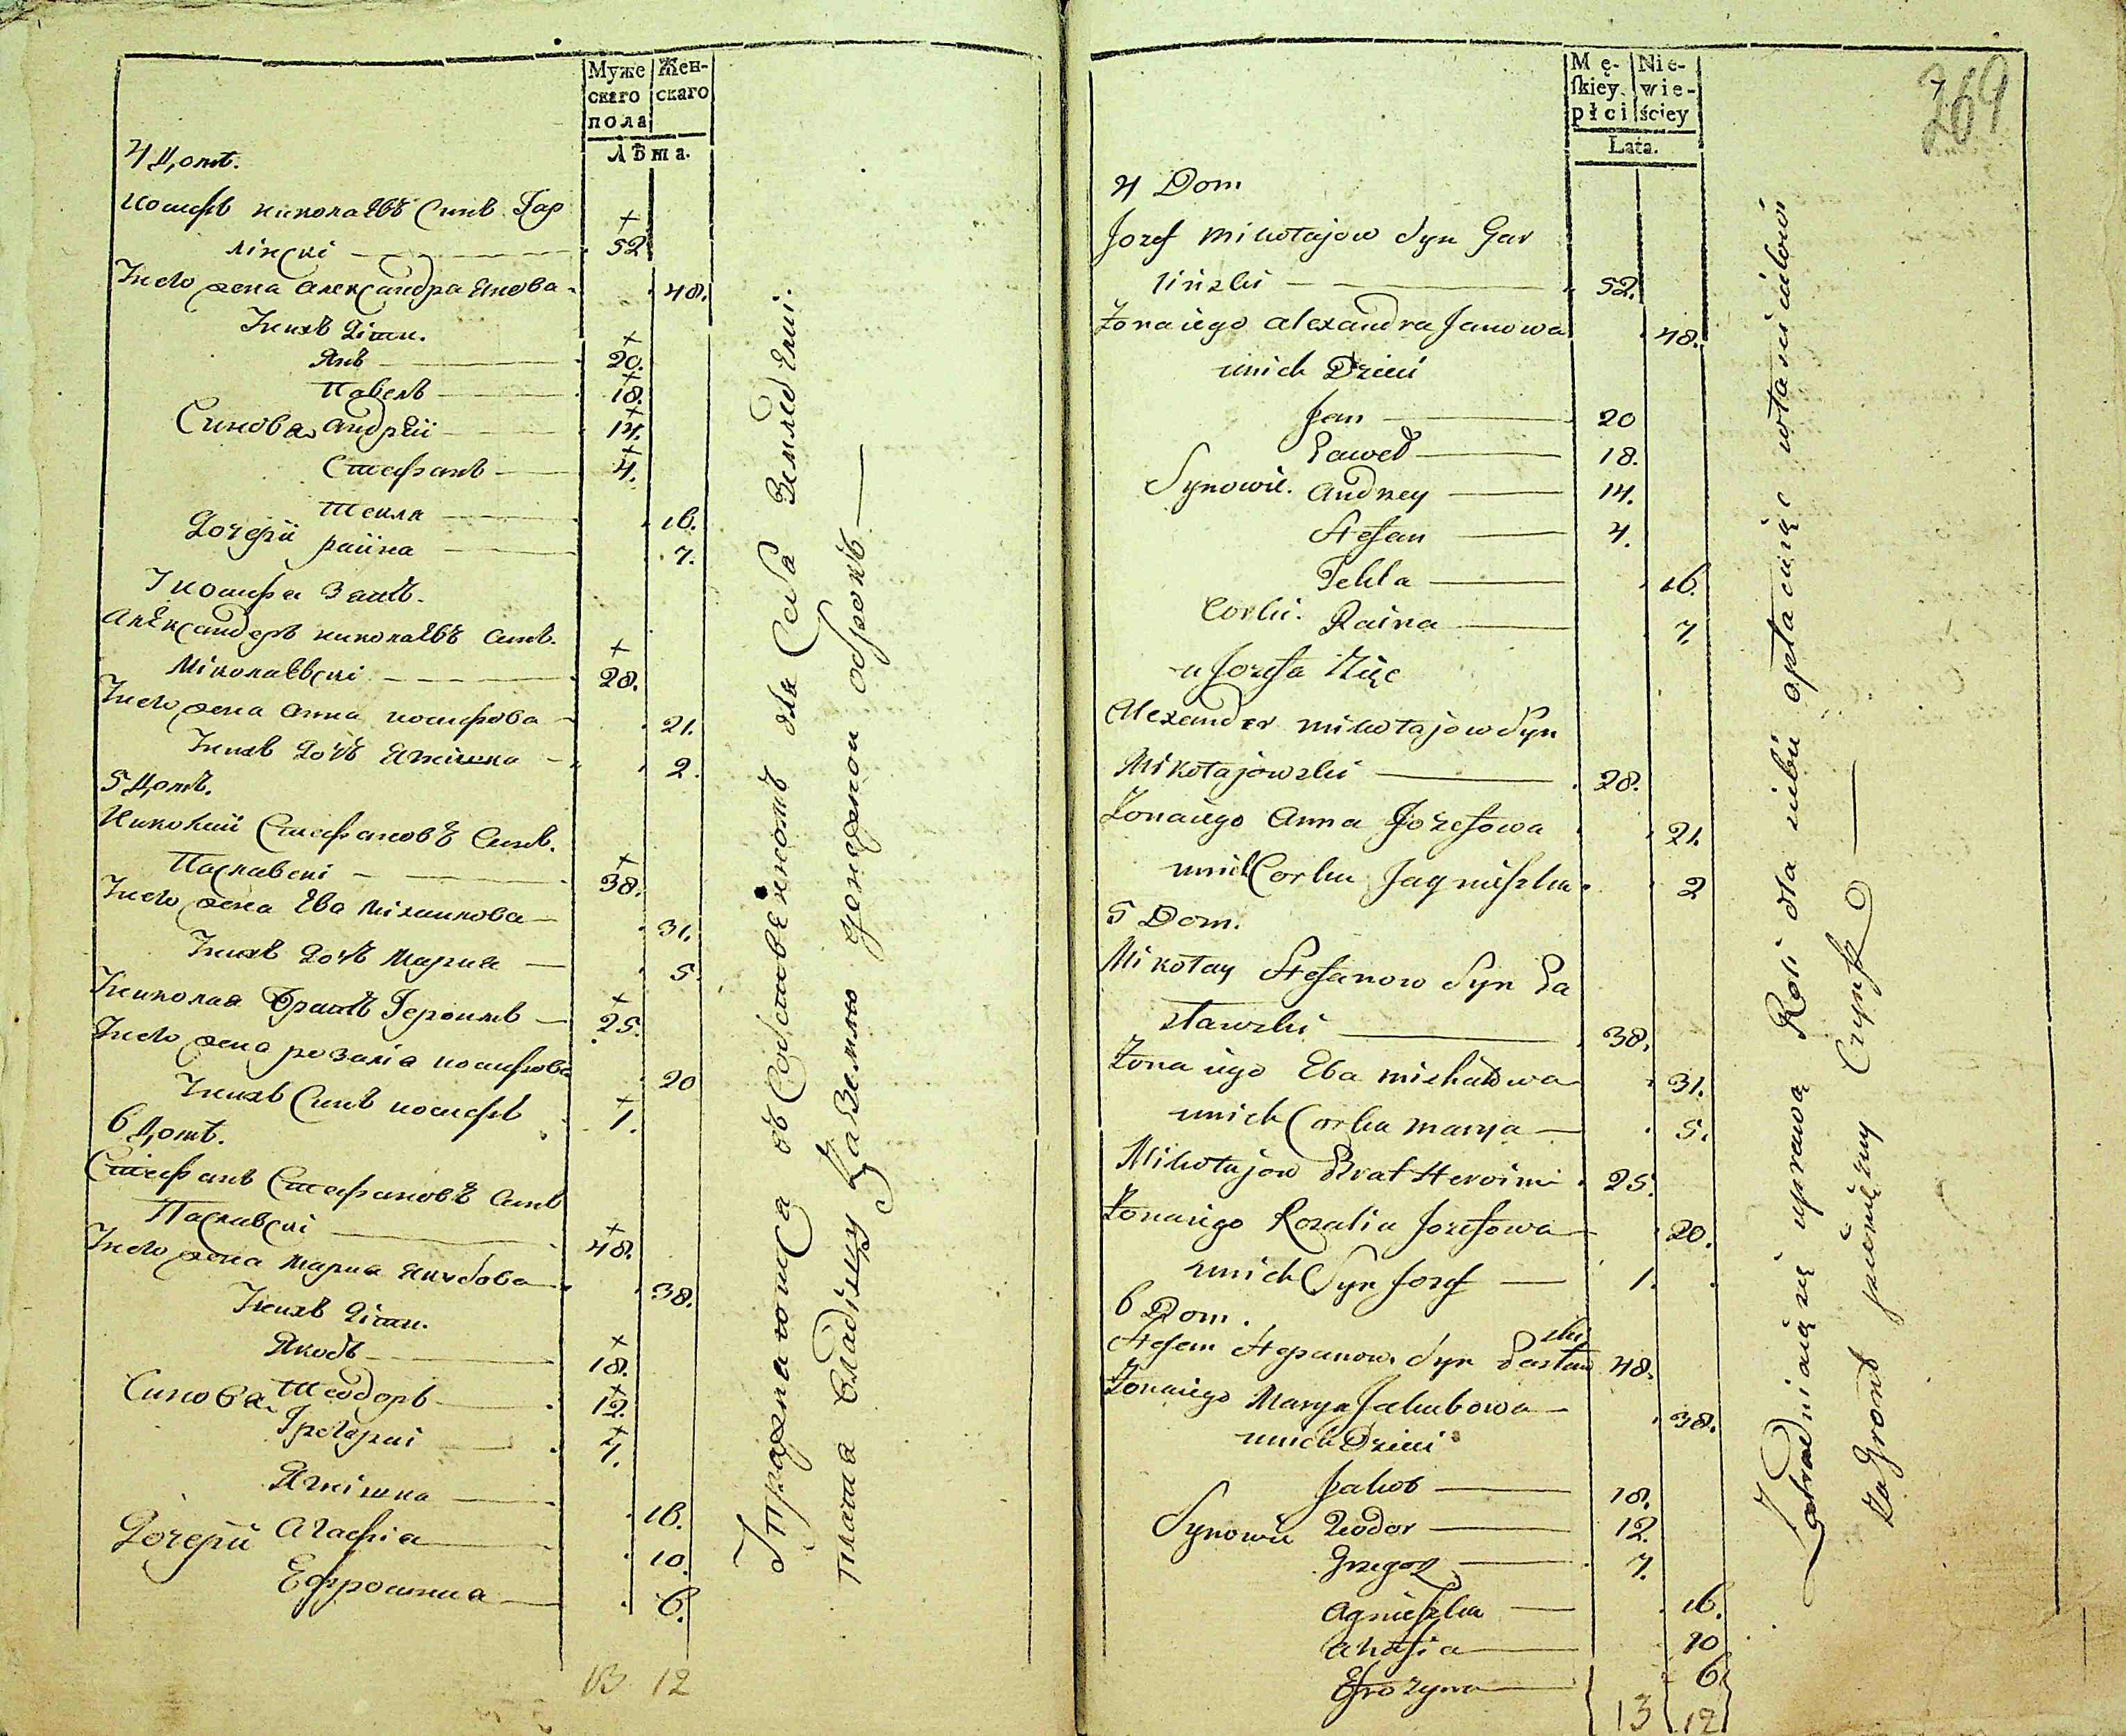 Муже Жен-
скаго скаго
пола
Лѣта.
4 Домъ.
Иосифъ николаевъ Синъ Гар
лінскі 52
Унего жена Александра Янова 48.
Унихъ Діти.
Янъ 20.
Павелъ 18.
Синова Андрій 14.
Стефанъ 4.
Текла 16.
Дочерй раина 7.
У иосифа Зять.
Александеръ николаевъ Синъ.
Міколаевскі 28.
Унего жена Анна иосифова 21.
Унихъ Дочъ Ягнишка 2.
5 Домъ.
Николай Стефановъ Синъ.
Паславскі 38.
Унего жена Ева Міхаилова 31.
Унихъ Дочъ Мариа 5.
Униколая Братъ Героимъ 25.
Унего жена розаліа иосифова 20
Унихъ Синъ иосифъ 1.
6 Домъ.
Стефанъ Стефановъ Синъ
Паславскі 48.
Унего жена Мариа Якубова 38.
Унихъ Діти.
Якобъ 18.
Синова Теодоръ 12.
Грегориі 7.
Ягнішка 16.
Дочерй Агафіа 10.
Ефросиниа 6.
13 12
Упражнаютса объ Собственномъ для Себа Земледеліи.
Плата Владілцу За Землю денежнои оброкъ
Mę- Nie-
ſkiey wie-
płci ściey
Lata.
269
4 Dom
Jozef Mikołajow Syn Gar
linski 52.
Zona iego Alexandra Janowa 48.
unich Dzieci
Jan 20
Paweł 18.
Synowie. Andrzey 14.
Stefan 4.
Tekla 16.
Corki. Raina 7.
u Jozefa Zięć
Alexander Mikołajow Syn
Mikołajowski 28.
Zona iego Anna Jozefowa 21.
unich Corka Jagnieszka 2
5 Dom.
Mikołay Stefanow Syn Pa
sławski 38.
Zona iego Eva Michałowa 31.
unich Corka Marya 5.
Mikołajow Brat Heroim 25.
Zona iego Rozalia Jozefowa 20.
unich Syn Jozef 1.
6 Dom.
Stefan Stepanow Syn Pasław
ski 48.
Zona iego Marya Jakubowa 38.
unich Dzieci
Jakob 18.
Synowie Teodor 12.
Grzegorz 7.
Agnieszka 16.
Ahafia 10
Efrozyna 6
13 12
Zatrudniaią się uprawą Roli dla siebie opłacaiąc włascicielowi
za Gront pieniężny Czynsz